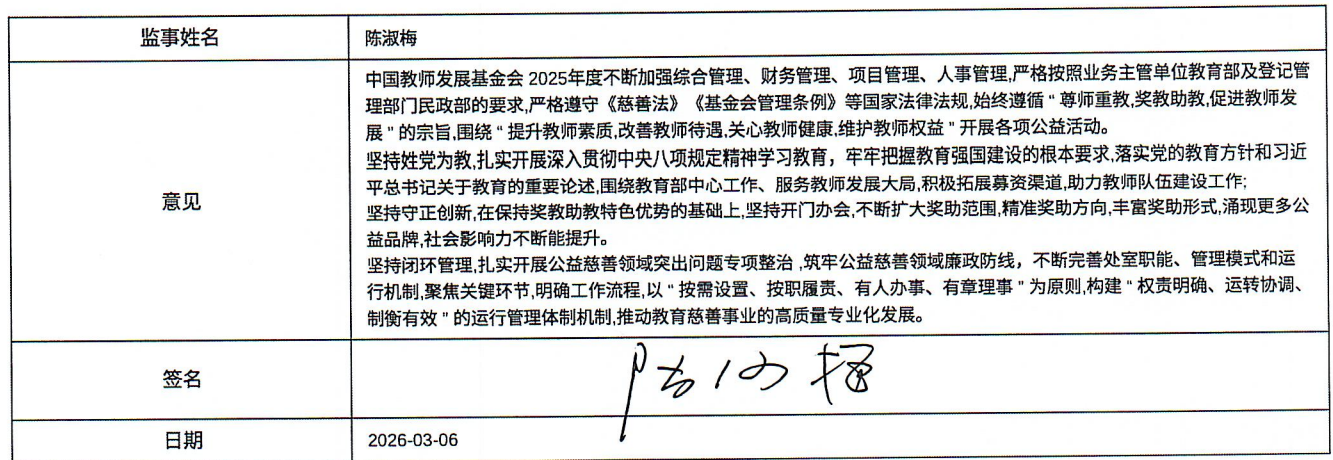 监事姓名
陈淑梅
意见
中国教师发展基金会 2025年度不断加强综合管理、财务管理、项目管理、人事管理,严格按照业务主管单位教育部及登记管
理部门民政部的要求,严格遵守《慈善法》《基金会管理条例》等国家法律法规,始终遵循 " 尊师重教,奖教助教,促进教师发
展 " 的宗旨,围绕 " 提升教师素质,改善教师待遇,关心教师健康,维护教师权益 " 开展各项公益活动。
坚持姓党为教,扎实开展深入贯彻中央八项规定精神学习教育，牢牢把握教育强国建设的根本要求,落实党的教育方针和习近
平总书记关于教育的重要论述,围绕教育部中心工作、服务教师发展大局,积极拓展募资渠道,助力教师队伍建设工作;
坚持守正创新,在保持奖教助教特色优势的基础上,坚持开门办会,不断扩大奖助范围,精准奖助方向,丰富奖助形式,涌现更多公
益品牌,社会影响力不断能提升。
坚持闭环管理,扎实开展公益慈善领域突出问题专项整治 ,筑牢公益慈善领域廉政防线，不断完善处室职能、管理模式和运
行机制,聚焦关键环节,明确工作流程,以 " 按需设置、按职履责、有人办事、有章理事 " 为原则,构建 " 权责明确、运转协调、
制衡有效 " 的运行管理体制机制,推动教育慈善事业的高质量专业化发展。
签名
日期
2026-03-06